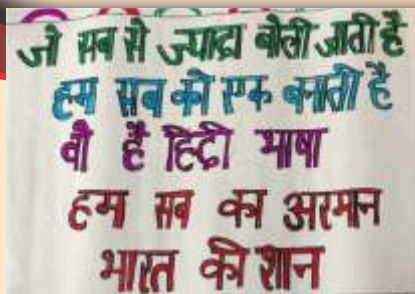 जो सब से ज्यादा बोली जाती है
हम सब को एक बनाती है
वो है हिंदी भाषा
हम सब का अरमान
भारत की शान